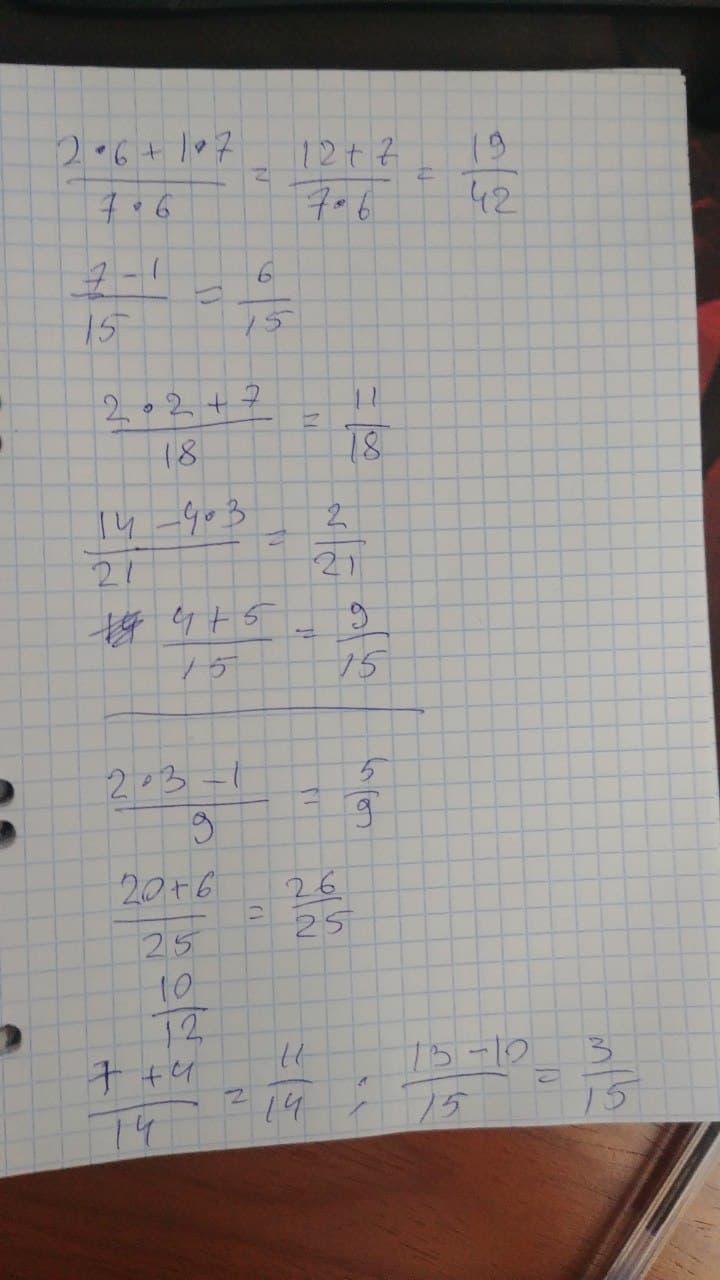 2·6+1·7/7·6 = 12+7/7·6 = 19/42
7-1/15 = 6/15
2·2+7/18 = 11/18
14-4·3/21 = 2/21
4+5/15 = 9/15
2·3-1/9 = 5/9
20+6/25 = 26/25
10/12
7+4/14 = 11/14 ; 13-10/15 = 3/15